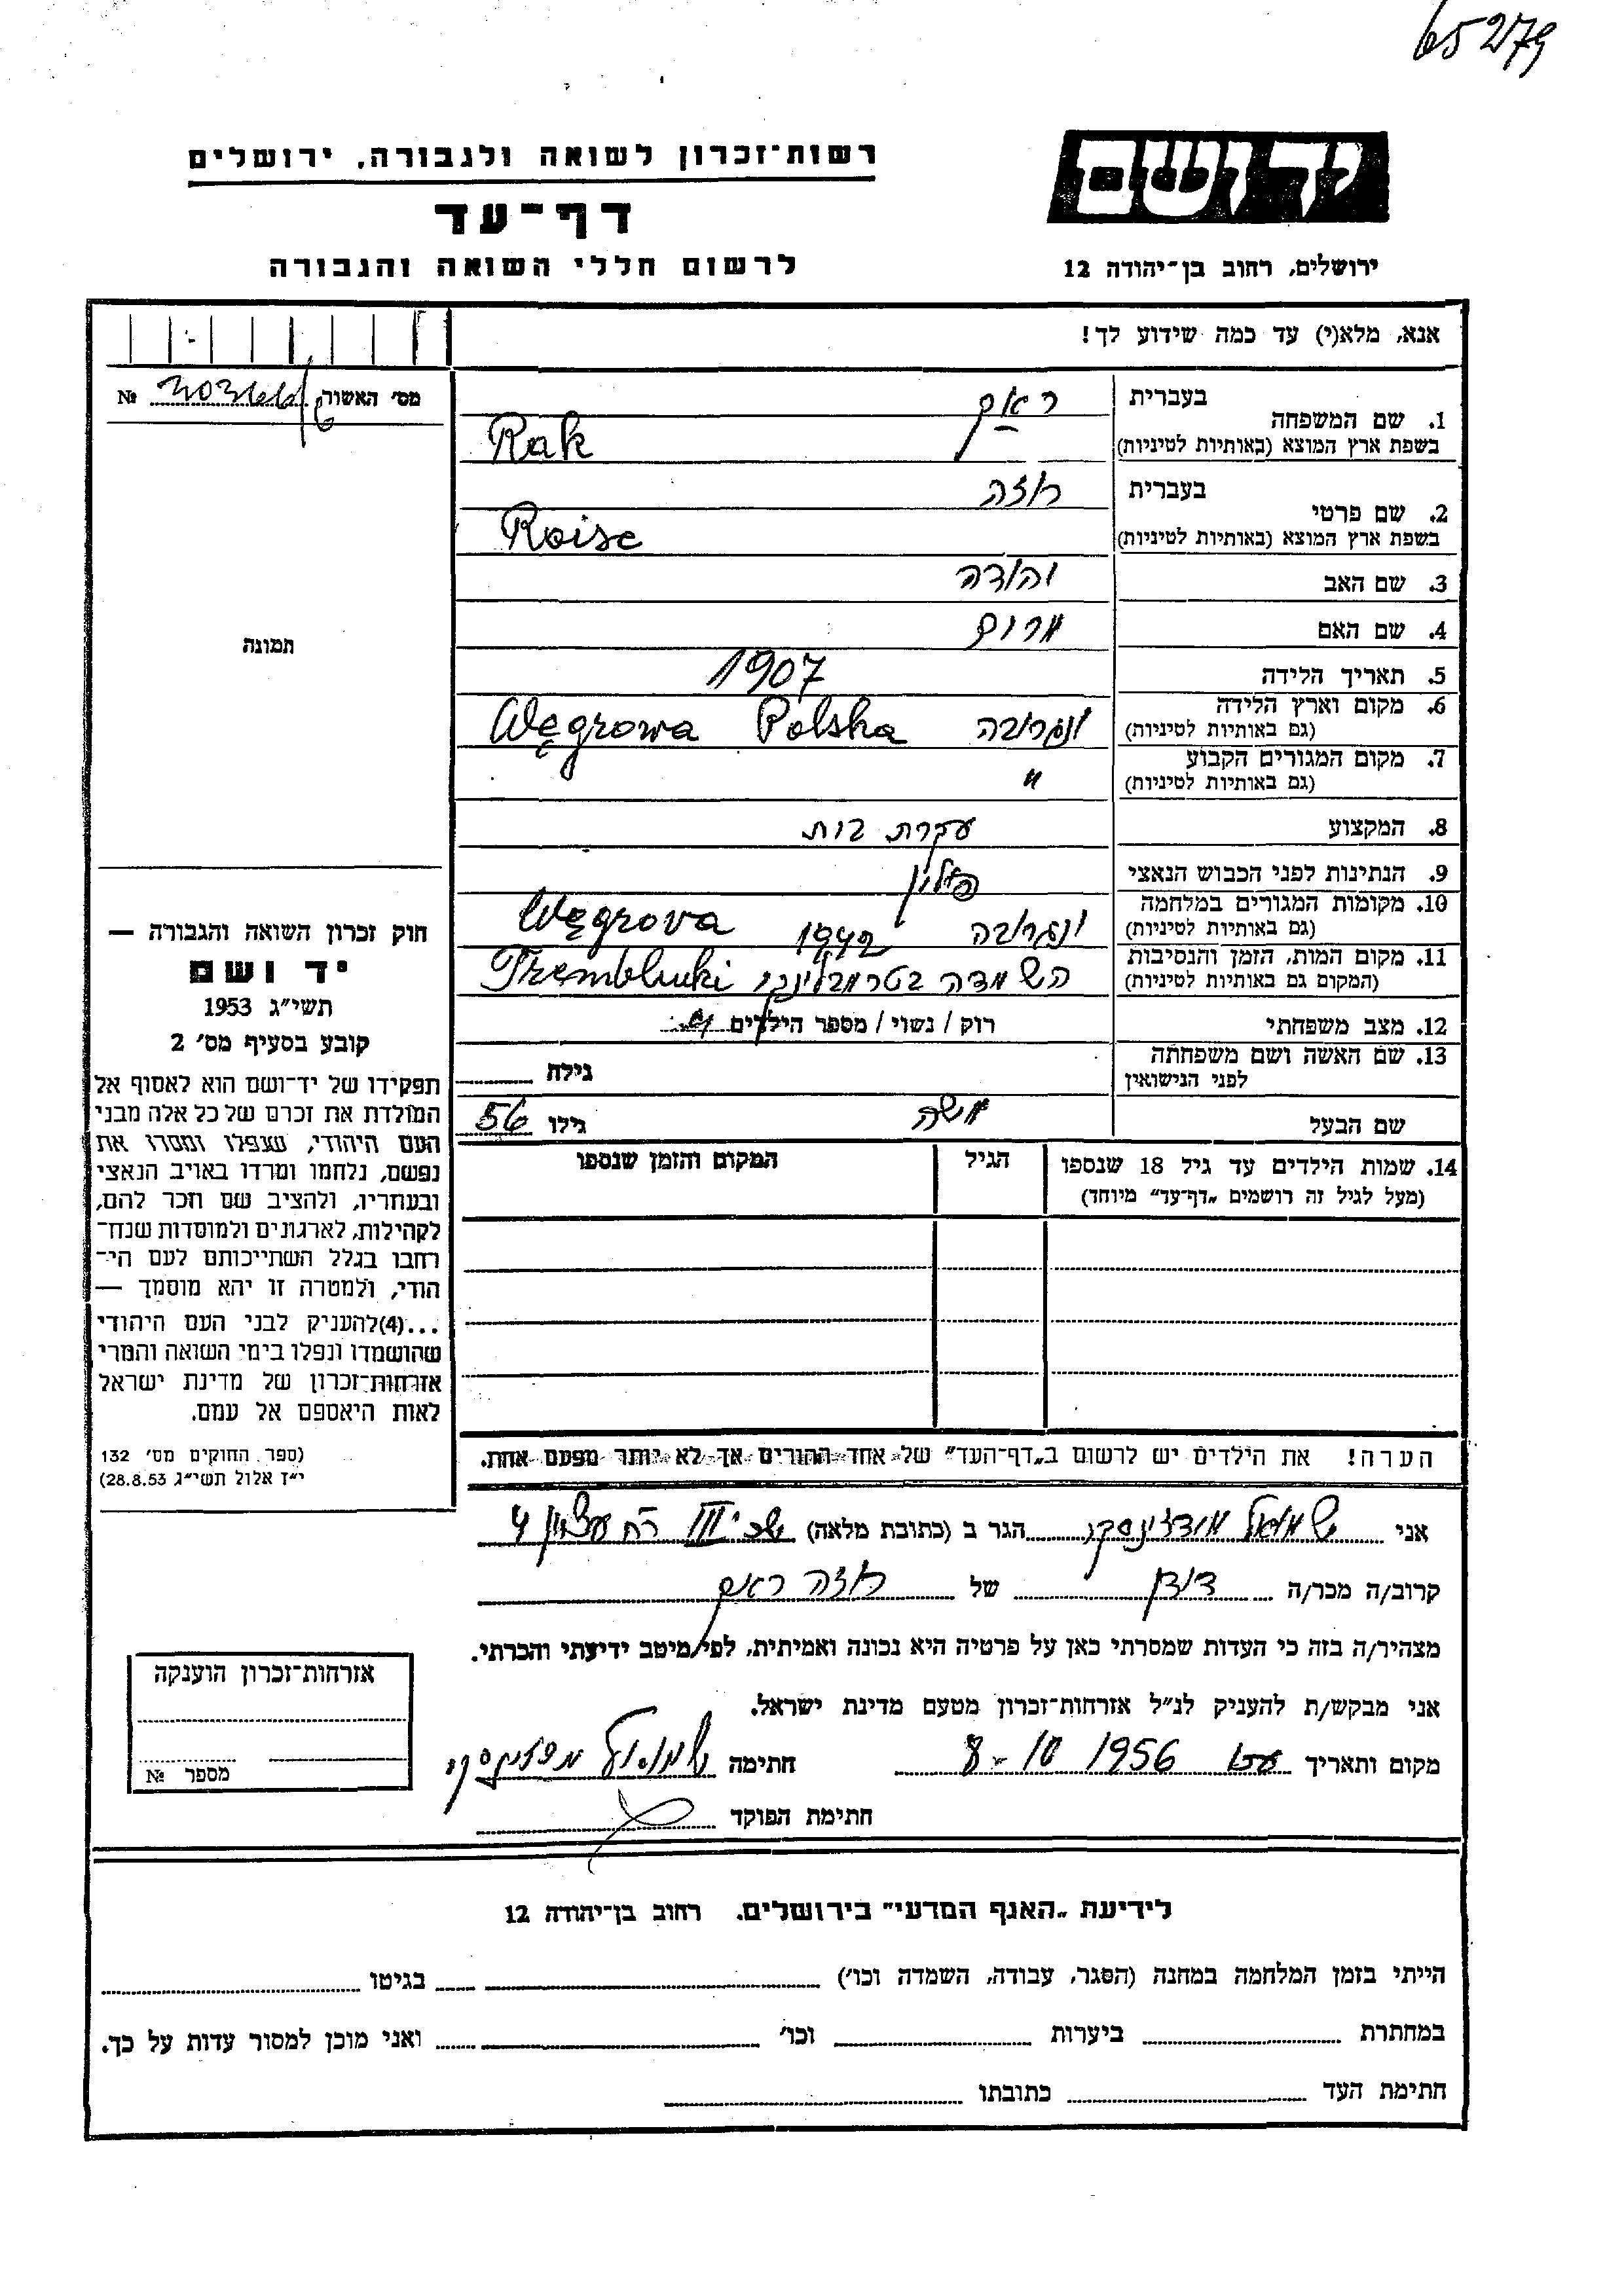 65279
רשות־זכרון לשואה ולגבורה, ירושלים
דף־עד
לרשום חללי השואה והגבורה
יד ושם
ירושלים, רחוב בן־יהודה 12
אנא, מלא(י) עד כמה שידוע לך!
מס׳ האשור №
1. שם המשפחה בעברית ראק
בשפת ארץ המוצא (באותיות לטיניות) Rak
2. שם פרטי בעברית רוזה
בשפת ארץ המוצא (באותיות לטיניות) Roise
3. שם האב יהודה
4. שם האם מרים
5. תאריך הלידה 1907
6. מקום וארץ הלידה (גם באותיות לטיניות) ונגרובה Węgrowa Polska
7. מקום המגורים הקבוע (גם באותיות לטיניות) "
8. המקצוע עקרת בית
9. הנתינות לפני הכבוש הנאצי פולין
10. מקומות המגורים במלחמה (גם באותיות לטיניות) ונגרובה 1942 Węgrova
11. מקום המות, הזמן והנסיבות (המקום גם באותיות לטיניות) השמדה בטרמבלינקי Trembluki
12. מצב משפחתי רוק / נשוי / מספר הילדים
13. שם האשה ושם משפחתה לפני הנישואין גילה
שם הבעל משה גילו 56
14. שמות הילדים עד גיל 18 שנספו הגיל המקום והזמן שנספו
(מעל לגיל זה רושמים „דף־עד״ מיוחד)
תמונה
חוק זכרון השואה והגבורה —
יד ושם
תשי״ג 1953
קובע בסעיף מס׳ 2
תפקידו של יד־ושם הוא לאסוף אל
המולדת את זכרם של כל אלה מבני
העם היהודי, שנפלו ומסרו את
נפשם, נלחמו ומרדו באויב הנאצי
ובעוזריו, ולהציב שם וזכר להם,
לקהילות, לארגונים ולמוסדות שנח־
רחבו בגלל השתייכותם לעם הי־
הודי, ולמטרה זו יהא מוסמך —
...(4)להעניק לבני העם היהודי
שהושמדו ונפלו בימי השואה והמרי
אזרחות־זכרון של מדינת ישראל
לאות היאספם אל עמם.
(ספר החוקים מס׳ 132
י״ז אלול תשי״ג 28.8.53)
הערה! את הילדים יש לרשום ב„דף־העד״ של אחד ההורים אך לא יותר מפעם אחת.
אני שמואל מודז׳ינסקי הגר ב (כתובת מלאה) שכ׳ III רח עציון 4
קרוב/ה מכר/ה דודן של רוזה ראק
מצהיר/ה בזה כי העדות שמסרתי כאן על פרטיה היא נכונה ואמיתית, לפי מיטב ידיעתי והכרתי.
אני מבקש/ת להעניק לנ״ל אזרחות־זכרון מטעם מדינת ישראל.
מקום ותאריך 8-10 1956 חתימה
חתימת הפוקד
אזרחות־זכרון הוענקה
מספר №
לידיעת „האגף המדעי״ בירושלים. רחוב בן־יהודה 12
הייתי בזמן המלחמה במחנה (הסגר, עבודה, השמדה וכו׳) בגיטו
במחתרת ביערות וכו׳ ואני מוכן למסור עדות על כך.
חתימת העד כתובתו